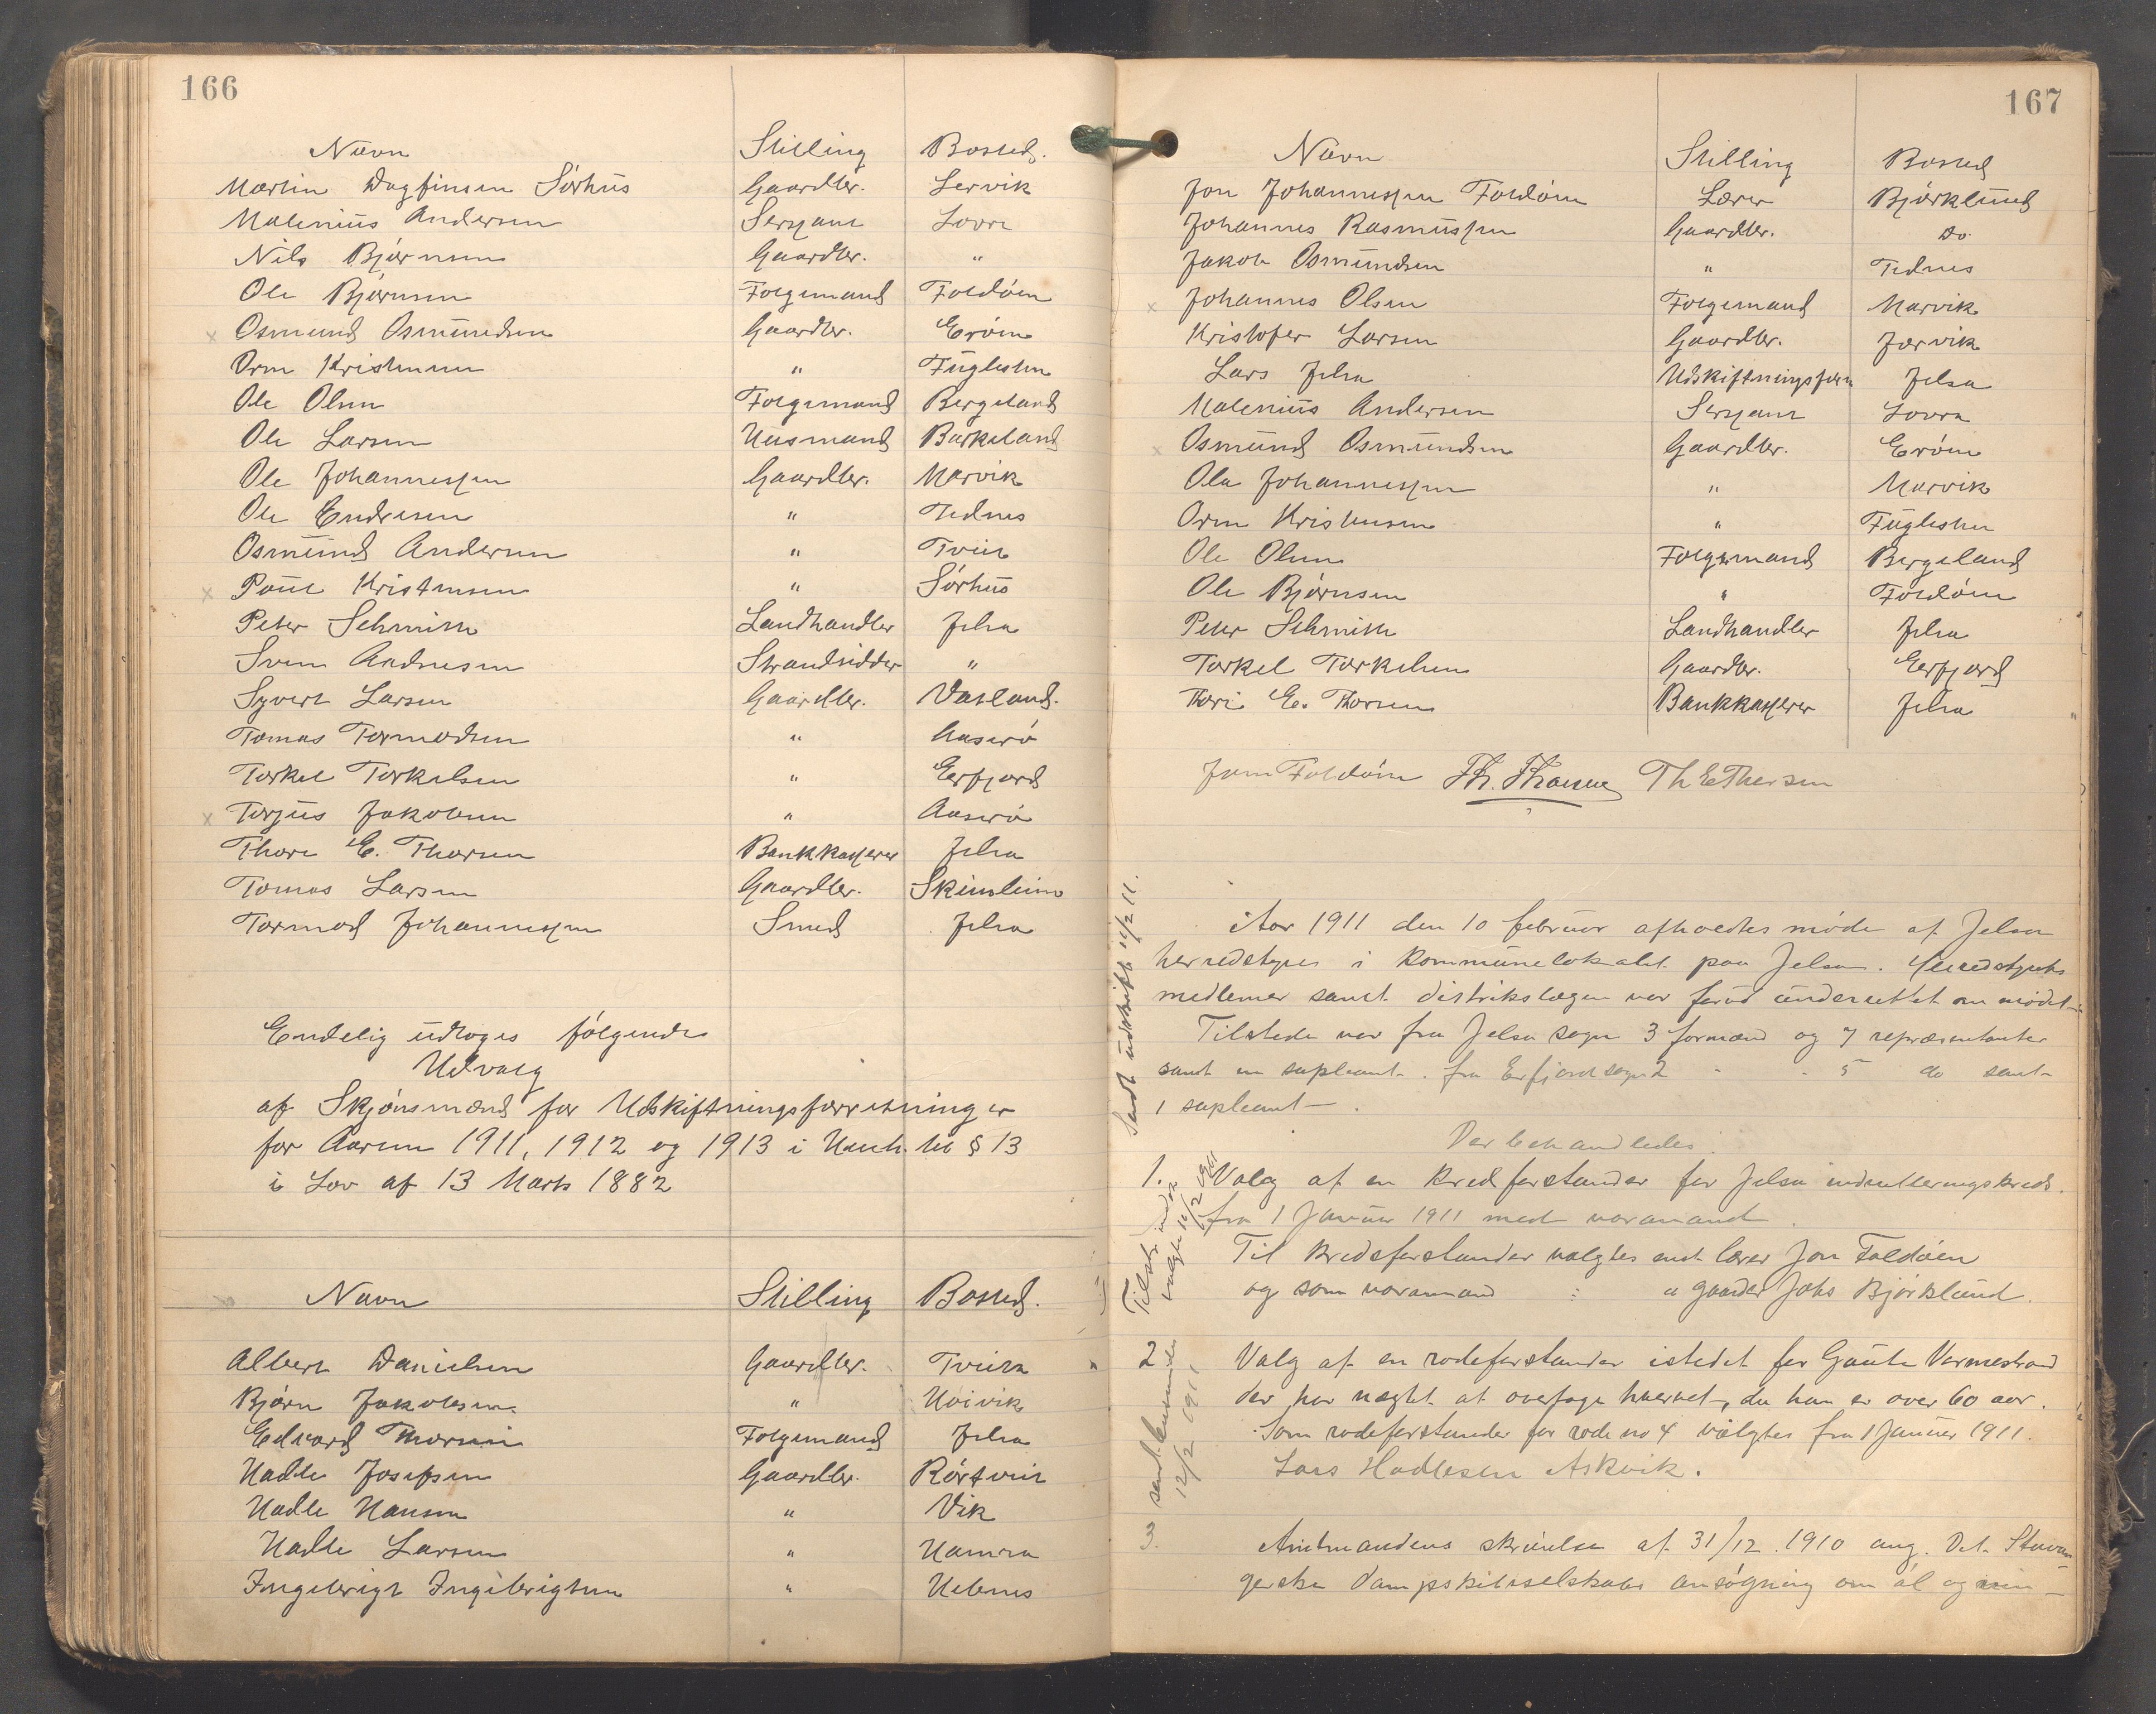 166
Navn Stilling Bosted.
Martin Dagfinsen Sørhus Gaardbr. Lervik
Malenius Andersen Serjant Lovra
Nils Bjørnsen Gaardbr. "
Ole Bjørnsen Folgemand Foldøen
x Osmund Osmundsen Gaardbr. Erøen
Orm Kristensen " Fuglesten
Ole Olsen Folgemand Bergeland
Ole Larsen Husmand Barkeland
Ole Johannessen Gaardbr. Marvik
Ole Endresen " Tednes
Osmund Andersen " Tveit
x Poul Kristensen " Sørhus
Peter Schmith Landhandler Jelsa
Sven Andresen Strandsidder "
Syvert Larsen Gaardbr. Vasland.
Tomas Tormodsen " Aaserø
Torkel Torkelsen " Erfjord
x Torjus Jakobsen " Aaserø
Thore E. Thorsen Bankkasserer Jelsa
Tomas Larsen Gaardbr. Skimleim
Tormod Johannessen Smed Jelsa
Endelig udtoges følgende
Udvalg
af Skjønsmænd for Udskiftningsforretninger
for Aarene 1911, 1912 og 1913 i Henh. til § 13
i Lov af 13 Marts 1882
Navn Stilling Bosted.
Albert Danielsen Gaardbr. Tveita
Bjørn Jakobsen " Hoivik
Edvard Thorsen Folgemand Jelsa
Hadle Josefsen Gaardbr. Rørtveit
Hadle Hansen " Vik
Hadle Larsen " Hamra
Ingebrigt Ingebrigtsen " Hebnes
167
Navn Stilling Bosted
Jon Johannessen Foldøen Lærer Bjørklund
Johannes Rasmussen Gaardbr. Do
Jakob Osmundsen " Tednes
x Johannes Olsen Folgemand Marvik
Kristofer Larsen Gaardbr. Jørvik
Lars Jelsa Udskiftningsform Jelsa
Malenius Andersen Serjant Lovra
x Osmund Osmundsen Gaardbr. Erøen
Ola Johannessen " Marvik
Orm Kristensen " Fuglesten
Ole Olsen Folgemand Bergeland
Ole Bjørnsen " Foldøen
Peter Schmith Landhandler Jelsa
Torkel Torkelsen Gaardbr. Erfjord
Thore E. Thorsen Bankkasserer Jelsa
Jon Foldøen Th. Th E Thorsen
Sendt udskrift 11/2 11.
Aar 1911 den 10 februar afholdtes møde af Jelsa
herredstyre i kommunelokalet paa Jelsa. Herredstyrets
medlemer samt distrikslægen var forud underrettet om mødet
Tilstede var fra Jelsa sogn 3 formænd og 7 repræsentanter
samt en supleant. fra Erfjord sogn 2 " " 5 do samt
1 supleant
Der behandledes.
1. Valg af en kredsforstander for Jelsa indrulleringskreds.
fra 1 Januar 1911 med varamand.
Til kredsforstander valgtes enst lærer Jon Foldøen
og som varamand : " gaarder Johs Bjørklund.
2 Valg af en rodeforstander istedet for Gaute Varmestrand
der har nægtet at overtage hvervet, da han er over 60 aar.
Som rodeforstander for rode no 4 valgtes fra 1 Januar 1911.
Lars Hadlesen Askvik.
12/2 1911
3. Amtmandens skrivelse af 31/12 1910 ang. Det Stavan
gerske Dampskibsselskabs ansøgning om øl og vin